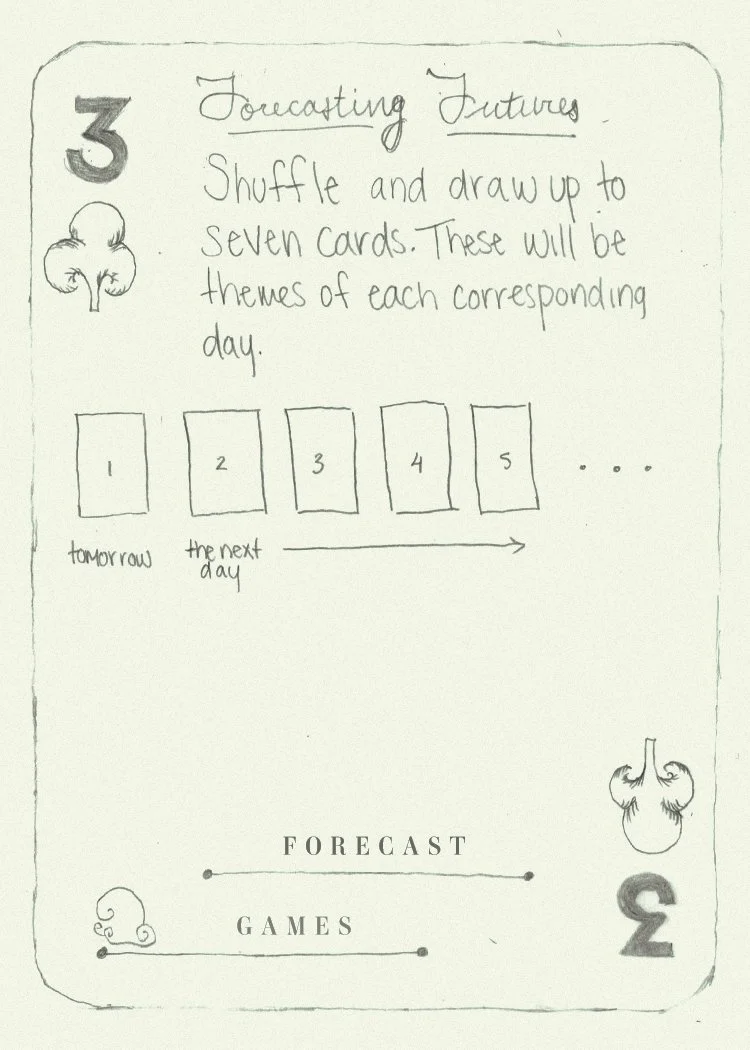 3
Forecasting Futures
Shuffle and draw up to
seven cards. These will be
themes of each corresponding
day.
1 2 3 4 5 ...
tomorrow the next
day
FORECAST
GAMES
3